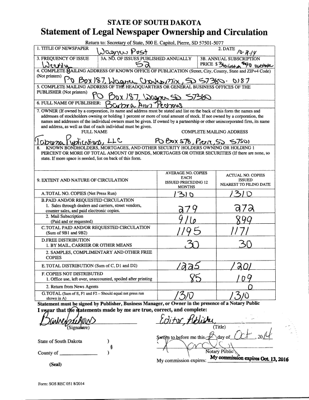 STATE OF SOUTH DAKOTA
Statement of Legal Newspaper Ownership and Circulation
Return to: Secretary of State, 500 E. Capitol, Pierre, SD 57501-5077
1. TITLE OF NEWSPAPER Wagner Post 2. DATE
3. FREQUENCY OF ISSUE Weekly 3A. NO. OF ISSUES PUBLISHED ANNUALLY 52 3B. ANNUAL SUBSCRIPTION PRICE $
4. COMPLETE MAILING ADDRESS OF KNOWN OFFICE OF PUBLICATION (Street, City, County, State and ZIP+4 Code)
(Not printers) PO Box 187, Wagner, SD 57380-0187
5. COMPLETE MAILING ADDRESS OF THE HEADQUARTERS OR GENERAL BUSINESS OFFICES OF THE
PUBLISHER (Not printers) PO Box 187, Wagner SD 57380
6. FULL NAME OF PUBLISHER: Barbara
7. OWNER (If owned by a corporation, its name and address must be stated and list on the back of this form the names and
addresses of stockholders owning or holding 1 percent or more of total amount of stock. If not owned by a corporation, the
names and addresses of the individual owners must be given. If owned by a partnership or other unincorporated firm, its name
and address, as well as that of each individual must be given.
FULL NAME COMPLETE MAILING ADDRESS
Publishing, LLC PO Box 878, SD 57501
8. KNOWN BONDHOLDERS, MORTGAGEES, AND OTHER SECURITY HOLDERS OWNING OR HOLDING 1
PERCENT OR MORE OF TOTAL AMOUNT OF BONDS, MORTGAGES OR OTHER SECURITIES (If there are none, so
state. If more space is needed, list on back of this form.
9. EXTENT AND NATURE OF CIRCULATION
AVERAGE NO. COPIES
EACH
ISSUED PRECEDING 12
MONTHS
ACTUAL NO. COPIES
ISSUED
NEAREST TO FILING DATE
A. TOTAL NO. COPIES (Net Press Run) 1310 1310
B. PAID AND/OR REQUESTED CIRCULATION
1. Sales through dealers and carriers, street vendors,
counter sales, and paid electronic copies. 279 272
2. Mail Subscriptions
(Paid and or requested) 916 899
C. TOTAL PAID AND/OR REQUESTED CIRCULATION
(Sum of 9B1 and 9B2) 1195 1171
D. FREE DISTRIBUTION
1. BY MAIL, CARRIER OR OTHER MEANS 30 30
2. SAMPLES, COMPLIMENTARY AND OTHER FREE
COPIES
E. TOTAL DISTRIBUTION (Sum of C, D1 and D2) 1225 1201
F. COPIES NOT DISTRIBUTED
1. Office use, left over, unaccounted, spoiled after printing 85 109
2. Return from News Agents 0
G. TOTAL (Sum of E, F1 and F2 - Should equal net press run
shown in A) 1310 1310
Statement must be signed by Publisher, Business Manager, or Owner in the presence of a Notary Public
I swear that the statements made by me are true, correct, and complete:
Editor, Publisher
(Signature) (Title)
State of South Dakota )
) §
County of )
Sworn to before me this day of Oct 2014
Notary Public
(Seal)
My commission expires: My commission expires Oct. 13, 2016
Form: SOS REC 051 8/2014